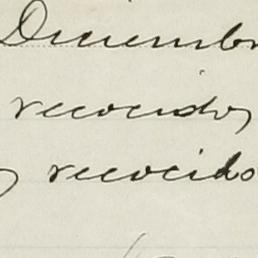 Diciembr
recocido,
recocido